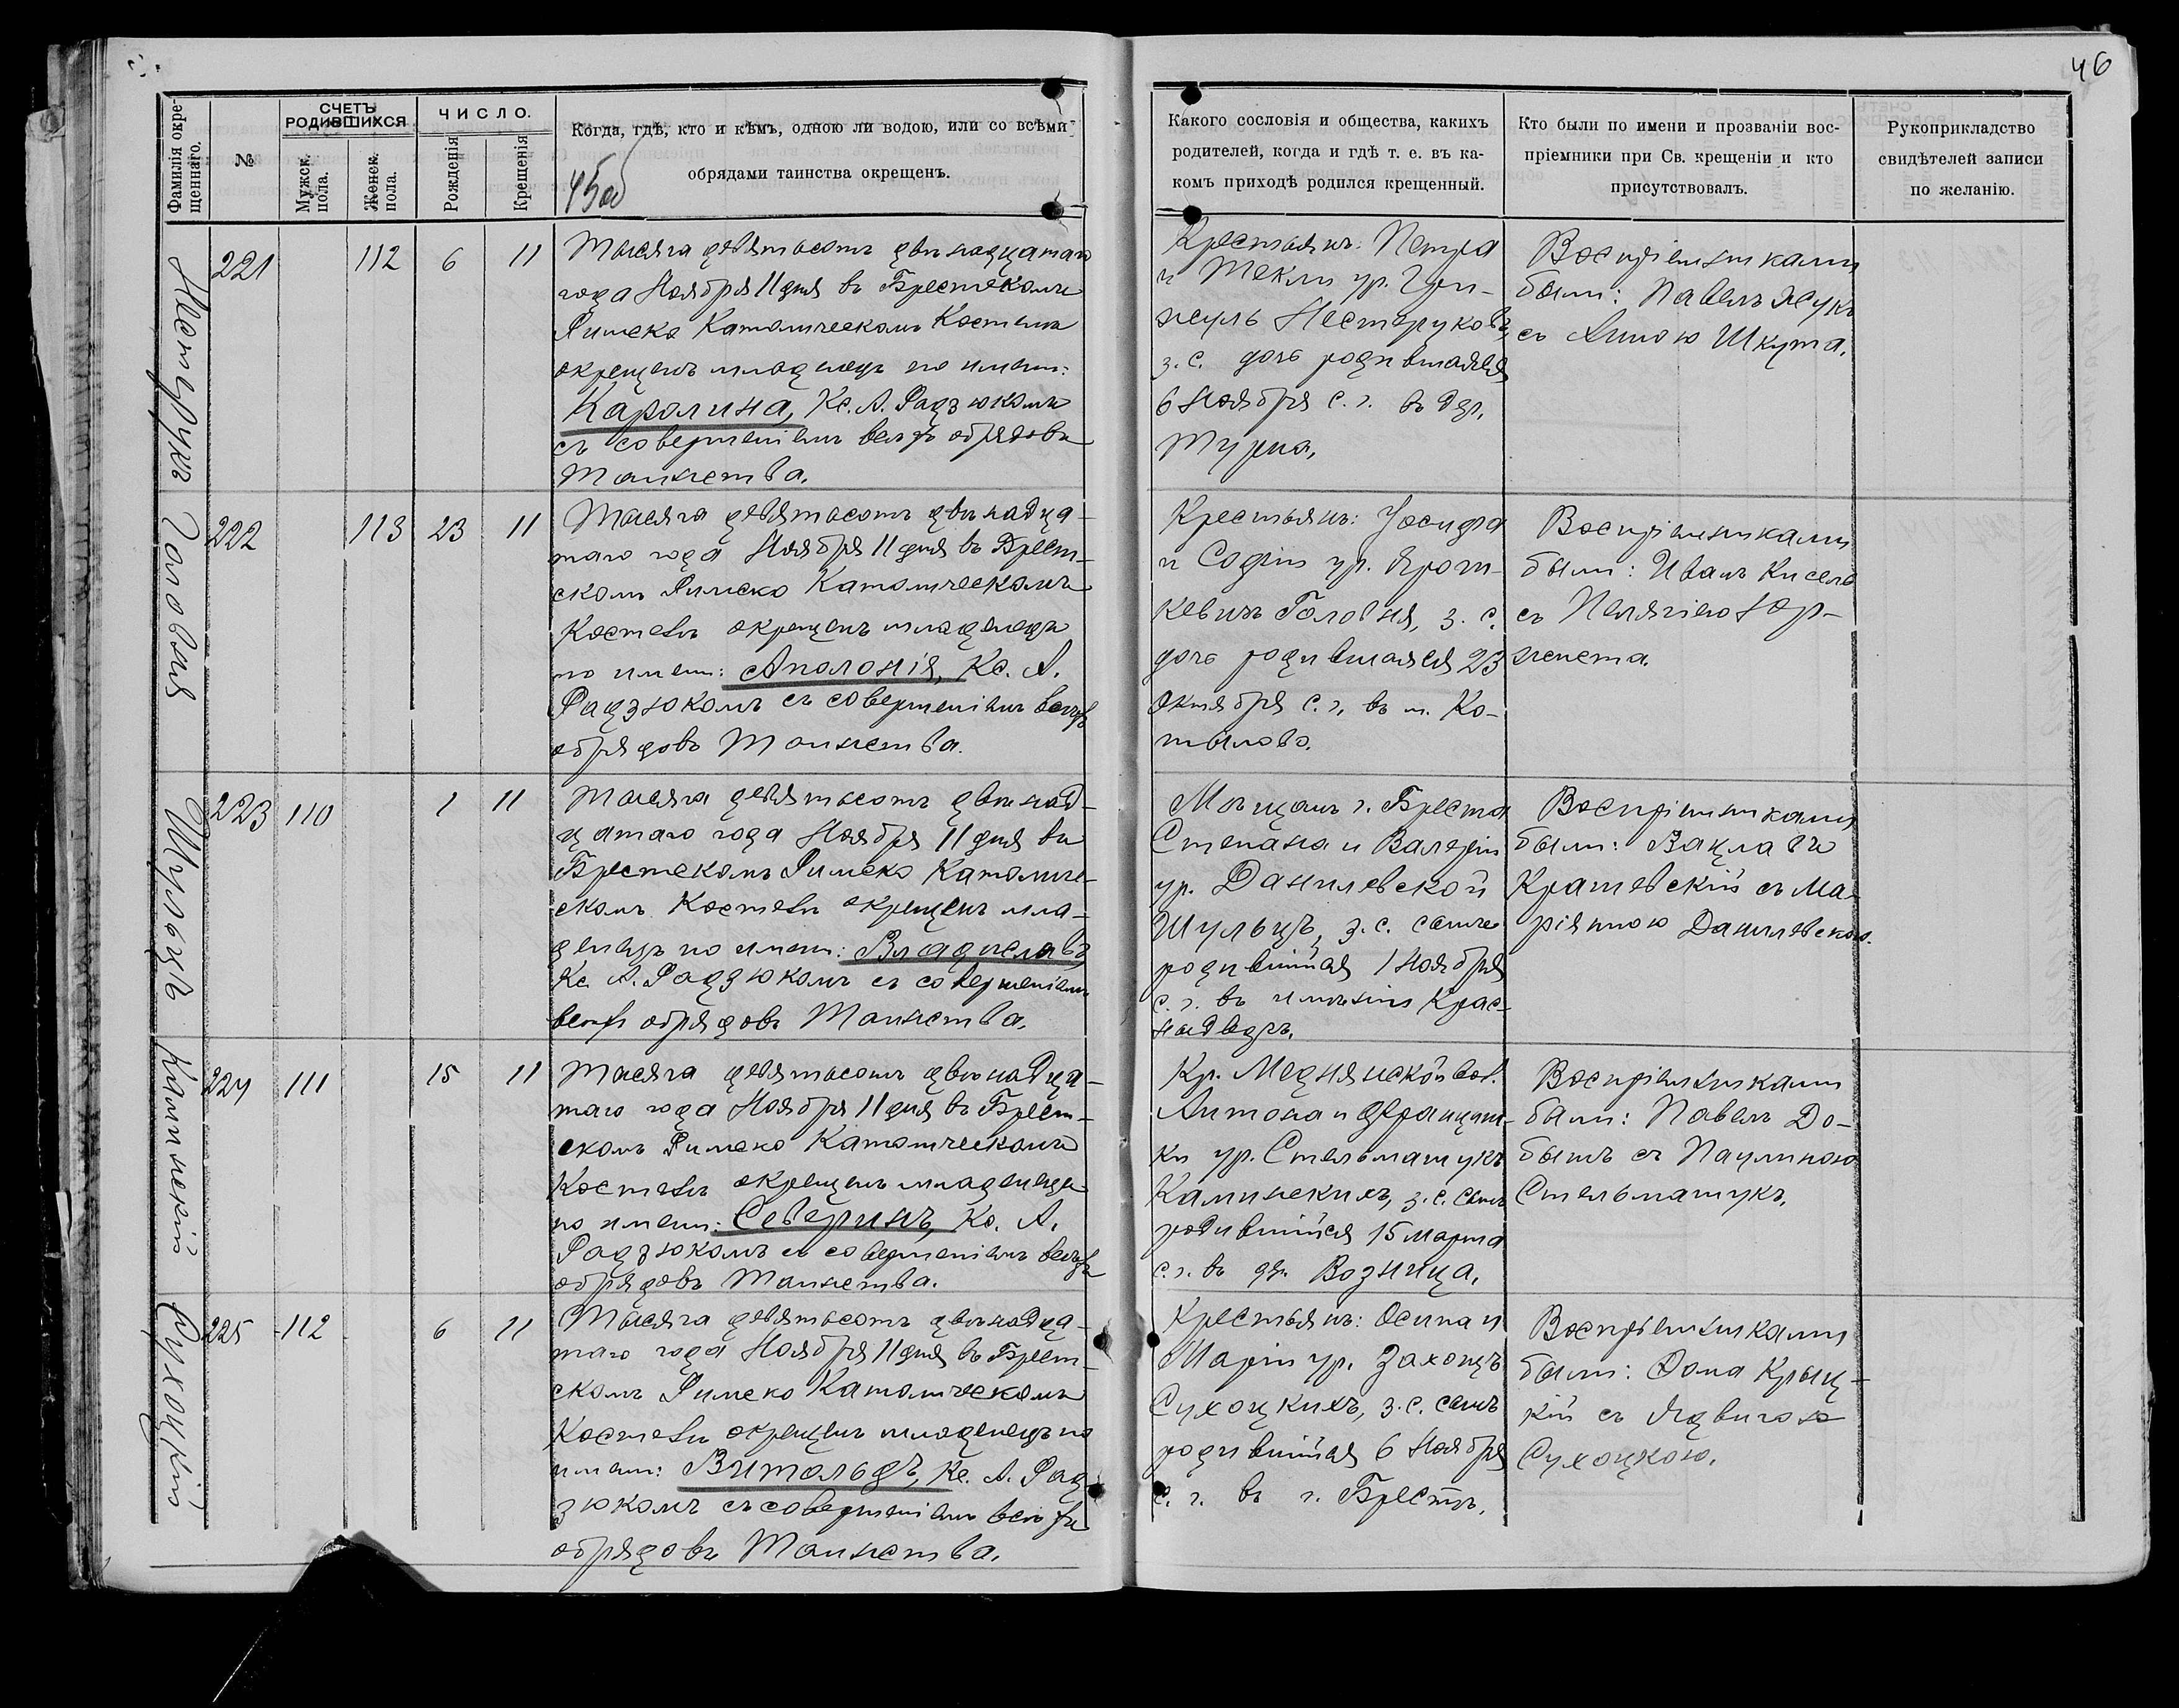 46
Фамилія окре-
щеннаго.
№
СЧЕТЪ
РОДИВШИХСЯ
Мужск.
пола.
Женск.
пола.
ЧИСЛО.
Рожденія
Крещенія
Когда, гдѣ, кто и кѣмъ, одною ли водою, или со всѣми
обрядами таинства окрещенъ.
Какого сословія и общества, какихъ
родителей, когда и гдѣ т. е. въ ка-
комъ приходѣ родился крещенный.
Кто были по имени и прозваніи вос-
пріемники при Св. крещеніи и кто
присутствовалъ.
Рукоприкладство
свидѣтелей записи
по желанію.
Нестерукъ
221 112 6 11
Тысяча девятьсотъ двѣнадцатаго
года Ноября 11 дня въ Брестскомъ
Римско Католическомъ Костелѣ
окрещенъ младенецъ по имени:
Каролина, Кс. А. Радзюкомъ
съ совершеніемъ всѣхъ обрядовъ
Таинства.
Крестьянъ: Петра
и Текли ур.
Нестеруковъ,
з. с. дочь родившаяся
6 Ноября с. г. въ дер.
Турна.
Воспріемниками
были: Павелъ Жукъ
съ Анною Шкута.
Головня
222 113 23 11
Тысяча девятьсотъ двѣнадца-
таго года Ноября 11 дня въ Брест-
скомъ Римско Католическомъ
Костелѣ окрещенъ младенецъ
по имени: Аполонія, Кс. А.
Радзюкомъ съ совершеніемъ всѣхъ
обрядовъ Таинства.
Крестьянъ: Іосифа
и Софіи ур. Яроши-
кевичъ Головня, з. с.
дочь родившаяся 23
Октября с. г. въ м. Ко-
тылово.
Воспріемниками
были: Иванъ Кисель
съ Пелагіею Юр-
женета.
Шульцъ
223 110 1 11
Тысяча девятьсотъ двѣнад-
цатаго года Ноября 11 дня въ
Брестскомъ Римско Католиче-
скомъ Костелѣ окрещенъ мла-
денецъ по имени: Владиславъ,
Кс. А. Радзюкомъ съ совершеніемъ
всѣхъ обрядовъ Таинства.
Мѣщанъ г. Бреста
Степана и Валеріи
ур. Данилевской
Шульцъ, з. с. сынъ
родившійся 1 Ноября
с. г. въ имѣніи Крас-
ныдворъ.
Воспріемниками
были: Вацлавъ
Крашевскій съ Ма-
ріянною Данилевскою.
Каминскій
224 111 15 11
Тысяча девятьсотъ двѣнадца-
таго года Ноября 11 дня въ Брест-
скомъ Римско Католическомъ
Костелѣ окрещенъ младенецъ
по имени: Северинъ, Кс. А.
Радзюкомъ съ совершеніемъ всѣхъ
обрядовъ Таинства.
Кр. Меднянской вол.
Антона и Францишки
ур. Стельмашукъ
Каминскихъ, з. с. сынъ
родившійся 15 Марта
с. г. въ дер. Возница.
Воспріемниками
были: Павелъ До-
бышъ съ Паулиною
Стельмашукъ.
Сухоцкій
225 112 6 11
Тысяча девятьсотъ двѣнадца-
таго года Ноября 11 дня въ Брест-
скомъ Римско Католическомъ
Костелѣ окрещенъ младенецъ по
имени: Витольдъ, Кс. А. Рад-
зюкомъ съ совершеніемъ всѣхъ
обрядовъ Таинства.
Крестьянъ: Осипа и
Маріи ур. Захонцъ
Сухоцкихъ, з. с. сынъ
родившійся 6 Ноября
с. г. въ г. Брестѣ.
Воспріемниками
были: Фома Крыц-
кій съ Ядвигою
Сухоцкою.